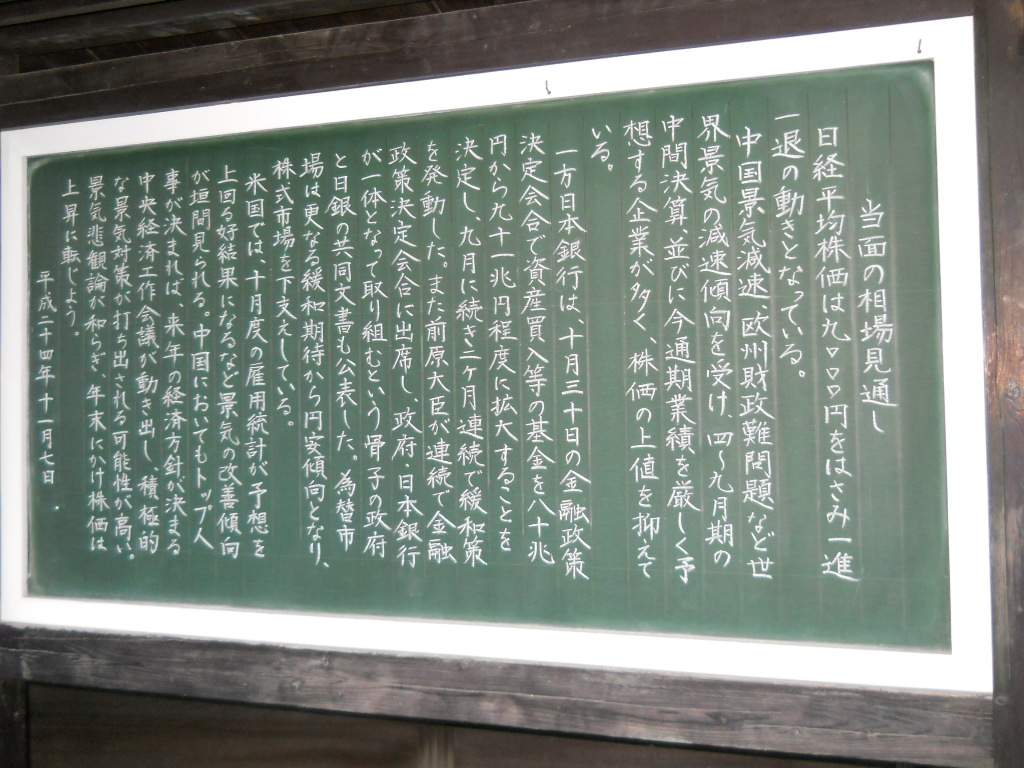 当面の相場見通し
日経平均株価は九〇〇〇円をはさみ一進
一退の動きとなっている。
中国景気減速、欧州財政難問題など世
界景気の減速傾向を受け、四〜九月期の
中間決算、並びに今通期業績を厳しく予
想する企業が多く、株価の上値を抑えて
いる。
一方日本銀行は、十月三十日の金融政策
決定会合で資産買入等の基金を八十兆
円から九十一兆円程度に拡大することを
決定し、九月に続き二ヶ月連続で緩和策
を発動した。また前原大臣が連続で金融
政策決定会合に出席し、政府・日本銀行
が一体となって取り組むという骨子の政府
と日銀の共同文書も公表した。為替市
場は更なる緩和期待から円安傾向となり、
株式市場を下支えしている。
米国では、十月度の雇用統計が予想を
上回る好結果になるなど景気の改善傾向
が垣間見られる。中国においてもトップ人
事が決まれば、来年の経済方針が決まる
中央経済工作会議が動き出し、積極的
な景気対策が打ち出される可能性が高い。
景気悲観論が和らぎ、年末にかけ株価は
上昇に転じよう。
平成二十四年十一月七日